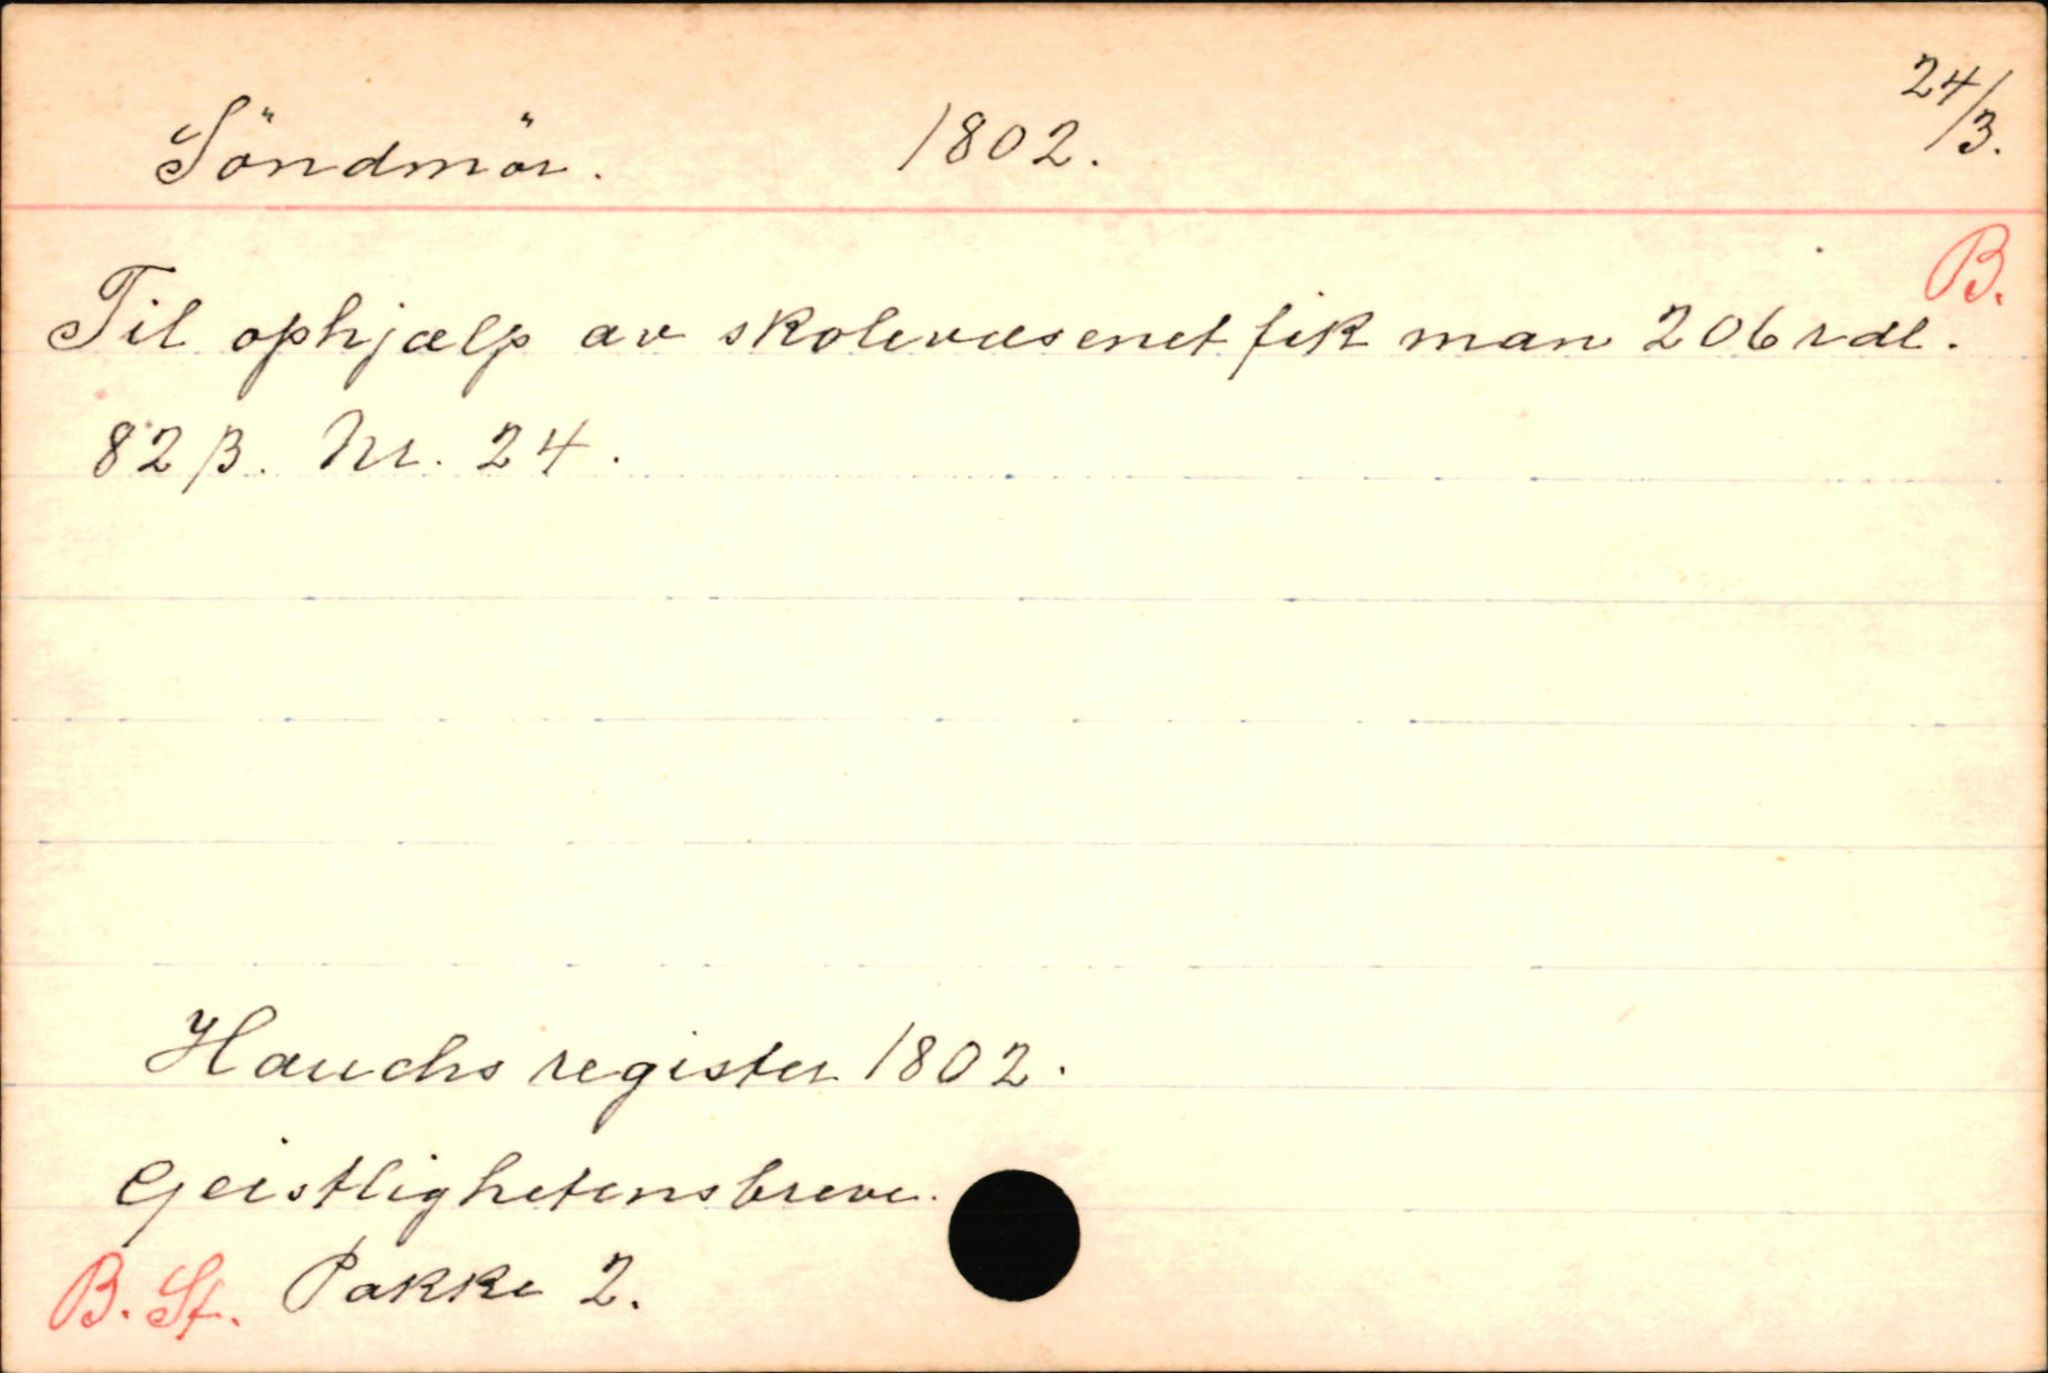 Söndmör. 1802. 24/3.
B.
Til ophjælp av skolevæsenet fik man 206 rdl.
82 β. Nr. 24.
Hauchs register 1802.
Geistlighetens breve.
B. St. Pakke 2.